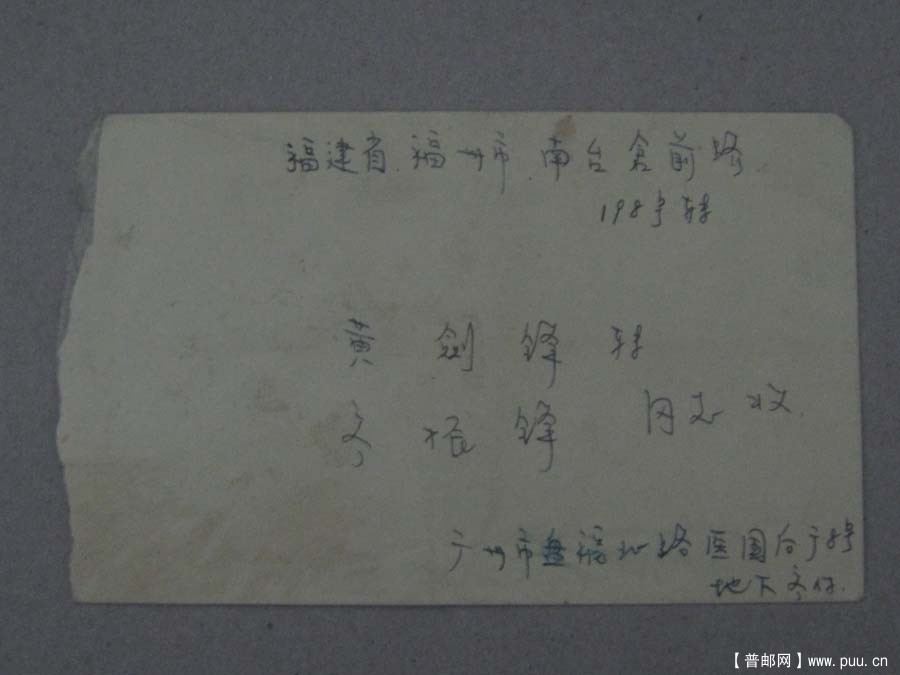 福建省.福州市.南台仓前路
198号转
黄剑锋 转
齐振锋 同志收
广州市盘福北路医国后
地下齐
【普邮网】www.puu.cn